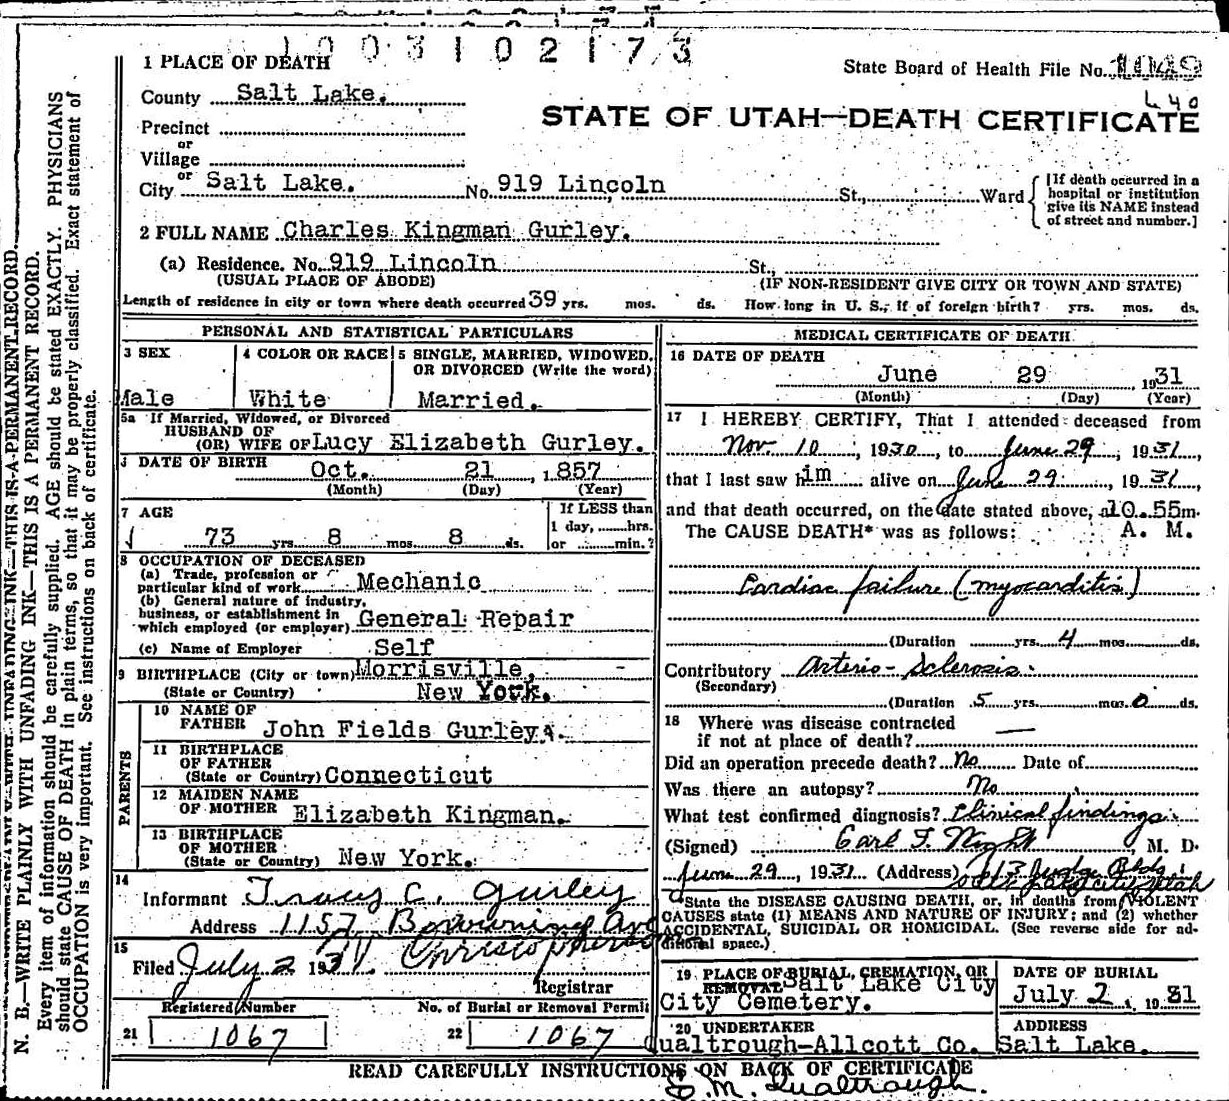 1003102173
1 PLACE OF DEATH
State Board of Health File No. 1049
County Salt Lake.
L40
STATE OF UTAH—DEATH CERTIFICATE
Precinct
or
Village
or
City Salt Lake. No. 919 Lincoln St., Ward
[If death occurred in a
hospital or institution
give its NAME instead
of street and number.]
2 FULL NAME Charles Kingman Gurley.
(a) Residence. No. 919 Lincoln St.,
(USUAL PLACE OF ABODE) (IF NON-RESIDENT GIVE CITY OR TOWN AND STATE)
Length of residence in city or town where death occurred 39 yrs. mos. ds. How long in U. S., if of foreign birth? yrs. mos. ds.
PERSONAL AND STATISTICAL PARTICULARS
3 SEX
Male
4 COLOR OR RACE
White
5 SINGLE, MARRIED, WIDOWED,
OR DIVORCED (Write the word)
Married.
5a If Married, Widowed, or Divorced
HUSBAND OF
(OR) WIFE OF Lucy Elizabeth Gurley.
DATE OF BIRTH Oct. 21 1857
(Month) (Day) (Year)
7 AGE
73 yrs. 8 mos. 8 ds.
If LESS than
1 day, hrs.
or min.?
8 OCCUPATION OF DECEASED
(a) Trade, profession or
particular kind of work Mechanic
(b) General nature of industry,
business, or establishment in
which employed (or employer) General Repair
(c) Name of Employer Self
9 BIRTHPLACE (City or town) Morrisville,
(State or Country) New York.
PARENTS
10 NAME OF
FATHER John Fields Gurley.
11 BIRTHPLACE
OF FATHER
(State or Country) Connecticut
12 MAIDEN NAME
OF MOTHER Elizabeth Kingman.
13 BIRTHPLACE
OF MOTHER
(State or Country) New York.
14
Informant Tracy C. Gurley
Address 1157 Browning Ave
15
Filed July 2 1931
Registrar
Registered Number
21 1067
No. of Burial or Removal Permit
22 1067
MEDICAL CERTIFICATE OF DEATH
16 DATE OF DEATH
June 29 1931
(Month) (Day) (Year)
17 I HEREBY CERTIFY, That I attended deceased from
Nov. 10, 1930, to June 29, 1931,
that I last saw him alive on June 29, 1931,
and that death occurred, on the date stated above, at 10.55 m.
The CAUSE DEATH* was as follows: A. M.
Cardiac failure (myocarditis)
(Duration yrs. 4 mos. ds.
Contributory Arterio-Sclerosis.
(Secondary)
(Duration 5 yrs. mos. 0 ds.
18 Where was disease contracted
if not at place of death? —
Did an operation precede death? No Date of
Was there an autopsy? No
What test confirmed diagnosis? Clinical findings
(Signed) Earl F. Wight M. D.
June 29, 1931 (Address) 613 Judge Bldg.
Salt Lake City Utah
*State the DISEASE CAUSING DEATH, or, in deaths from VIOLENT
CAUSES state (1) MEANS AND NATURE OF INJURY; and (2) whether
ACCIDENTAL, SUICIDAL OR HOMICIDAL. (See reverse side for ad-
ditional space.)
19 PLACE OF BURIAL, CREMATION, OR
REMOVAL Salt Lake City
City Cemetery.
DATE OF BURIAL
July 2, 1931
20 UNDERTAKER
Qualtrough-Allcott Co.
ADDRESS
Salt Lake.
READ CAREFULLY INSTRUCTIONS ON BACK OF CERTIFICATE
E. M. Qualtrough.
N. B.—WRITE PLAINLY WITH UNFADING INK—THIS IS A PERMANENT RECORD.
Every item of information should be carefully supplied. AGE should be stated EXACTLY. PHYSICIANS
should state CAUSE OF DEATH in plain terms, so that it may be properly classified. Exact statement of
OCCUPATION is very important. See instructions on back of certificate.